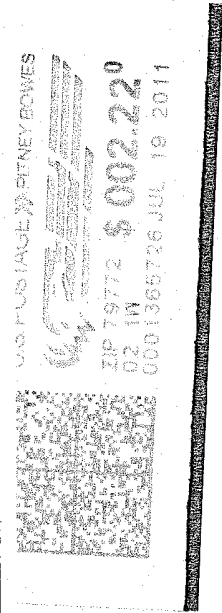 U.S. POSTAGE >> PITNEY BOWES
ZIP 79772 $ 002.22⁰
02 1W
0001365726 JUL 19 2011